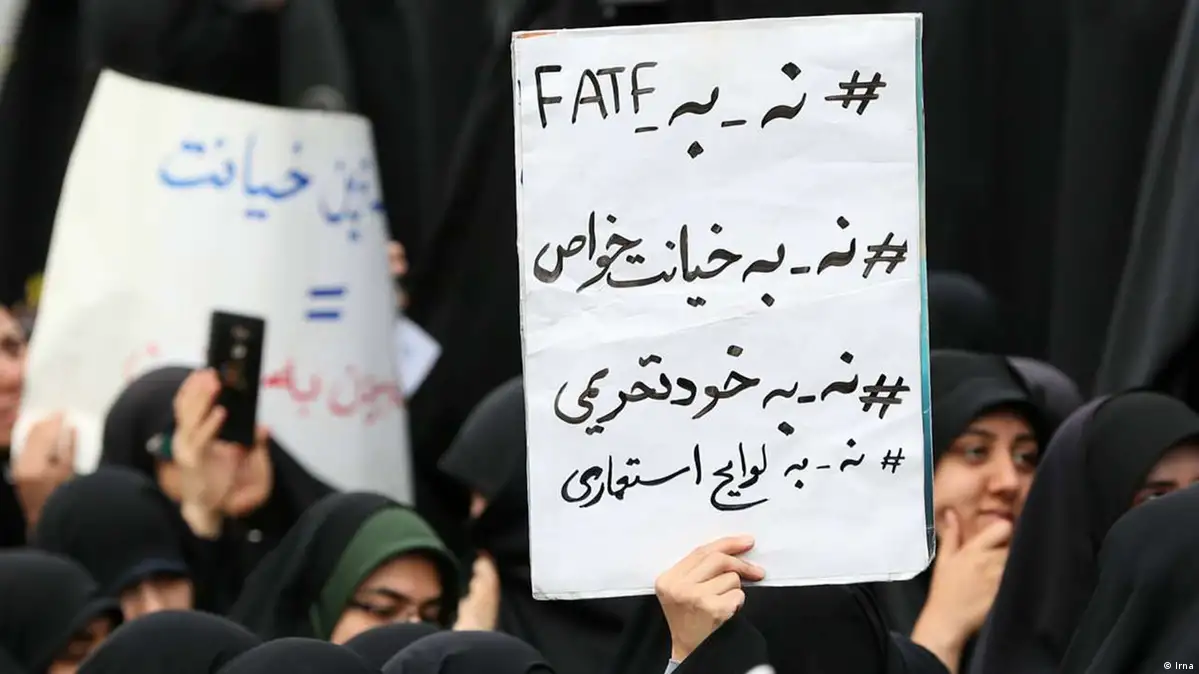 # نه_به_FATF
# نه_به خیانت خواص
# نه_به خودتحریمی
# نه_به لوایح استعماری
خیانت
=
© Irna